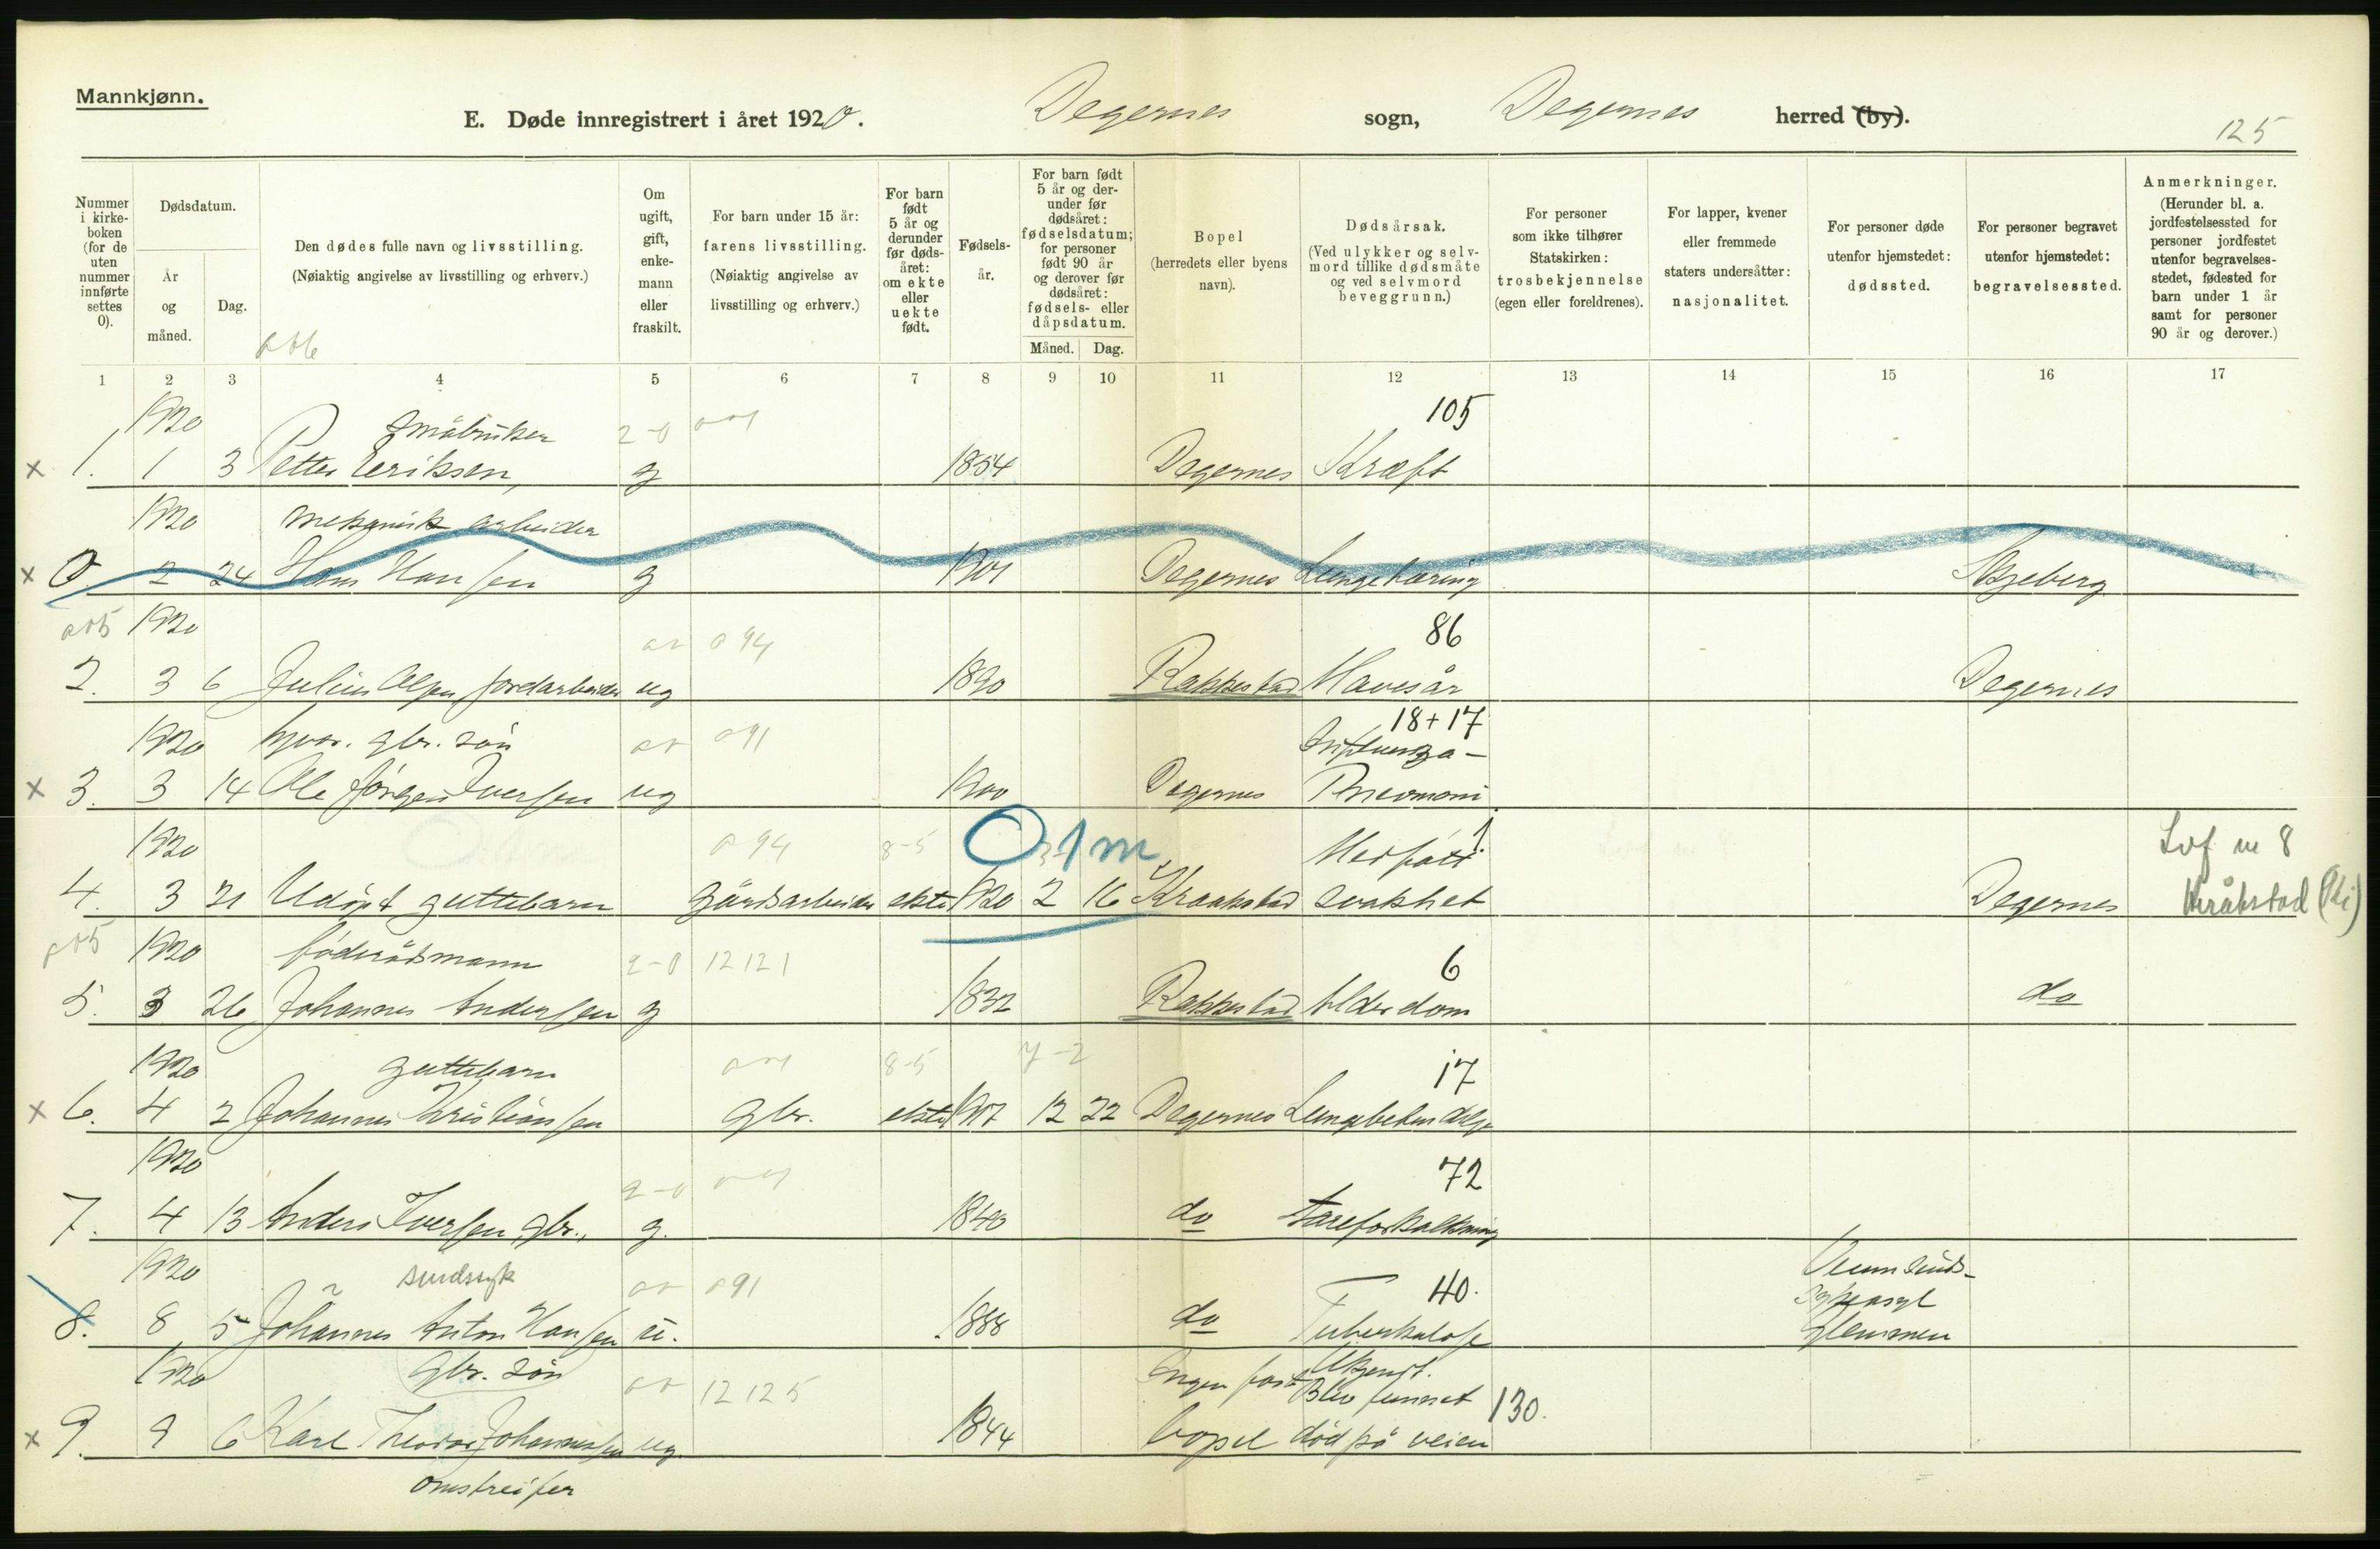 Mannkjønn.
E. Døde innregistrert i året 1920. Degernes sogn, Degernes herred (by).
125
Nummer i kirke-boken (for de uten nummer innførte settes 0).
Dødsdatum.
År og måned.
Dag.
Den dødes fulle navn og livsstilling.
(Nøiaktig angivelse av livsstilling og erhverv.)
Om ugift, gift, enke-mann eller fraskilt.
For barn under 15 år: farens livsstilling.
(Nøiaktig angivelse av livsstilling og erhverv.)
For barn født 5 år og derunder før døds-året: om ekte eller uekte født.
Fødsels-år.
For barn født 5 år og der-under før dødsåret: fødselsdatum; for personer født 90 år og derover før dødsåret: fødsels- eller dåpsdatum.
Måned. Dag.
Bopel
(herredets eller byens navn).
Dødsårsak.
(Ved ulykker og selv-mord tillike dødsmåte og ved selvmord beveggrunn.)
For personer som ikke tilhører Statskirken: trosbekjennelse (egen eller foreldrenes).
For lapper, kvener eller fremmede staters undersåtter: nasjonalitet.
For personer døde utenfor hjemstedet: dødssted.
For personer begravet utenfor hjemstedet: begravelsessted.
Anmerkninger.
(Herunder bl. a. jordfestelsessted for personer jordfestet utenfor begravelses-stedet, fødested for barn under 1 år samt for personer 90 år og derover.)
1 2 3 4 5 6 7 8 9 10 11 12 13 14 15 16 17
1920 småbruker 2-0 105
x 1. 1 3 Petter Eriksen, g 1854 Degernes Kræft
1920 mekanisk arbeider
x 0 2 24 Hans Hansen g 1901 Degernes Lungetæring Skjeberg
1920 094 86
2. 3 6 Julius Olsen, jordarbeider ug 1890 Rakkestad Mavesår Degernes
1920 gbr. søn 091 18+17 Influenza-
x 3. 3 14 Ole Jørgen Iversen ug 1900 Degernes Pnevmoni
1920 094 8-5 O 1 m Medfødt Lvf m 8
4. 3 21 Udøpt guttebarn gårdsarbeider ekte 1920 2 16 Kraakstad svakhet Degernes Kråkstad (Ski)
1920 føderådsmann 2-0 12121 6
5. 3 26 Johannes Andersen g 1832 Rakkestad Alderdom do
1920 guttebarn 8-5 17
x 6. 4 2 Johannes Kristiansen gbr. ekte 1917 12 22 Degernes Lungebetendelse
1920 2-0 72
7. 4 13 Anders Iversen, gbr., g. 1840 do Åreforkalkning
1920 sindssyk 091 40. Veum sinds-
sykeasyl
8. 8 5 Johannes Anton Hansen u. 1888 do Tuberkulose Glemmen
1920 gbr. søn 12125 Ingen fast Ukjent. Blev funnet 130.
x 9. 9 6 Karl Theodor Johannessen ug. 1844 bopel død på veien
omstreifer